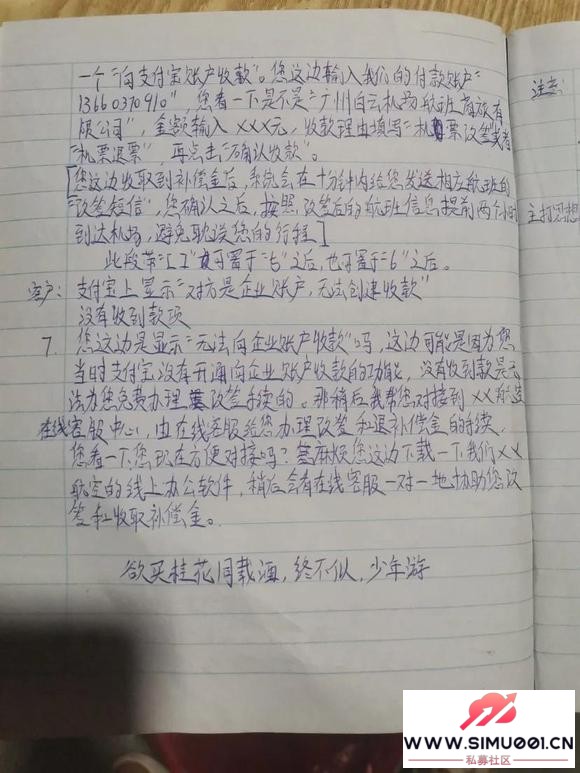 一个“向支付宝账户收款”。您这边输入我们的付款账户“
13660370910”，您看一下是不是“广州白云机场航班商旅有
限公司”，金额输入XXX元，收款理由填写“机票改签或者
“机票退票”，再点击“确认收款”。
[您这边收取到补偿金后，系统会在十分钟内给您发送相应航班的
“改签短信”，您确认之后，按照改签后的航班信息提前两个小时
到达机场，避免耽误您的行程]
此段带“[ ]”可置于“5”之后，也可置于“6”之后。
客户：支付宝上显示“对方是企业账户，无法创建收款”
没有收到款项
7. 您这边是显示“无法向企业账户收款”吗，这边可能是因为您
当时支付宝没有开通向企业账户收款的功能，没有收到款是无
法为您免费办理改签手续的。那稍后我帮您对接到XX航空
在线客服中心，由在线客服给您办理改签和退补偿金的手续，
您看一下，您现在方便对接吗？麻烦您这边下载一下我们XX
航空的线上办公软件，稍后会有在线客服一对一地协助您改
签和收取补偿金。
欲买桂花同载酒，终不似，少年游
注意：
主打思想
WWW.SIMU001.CN
私募社区